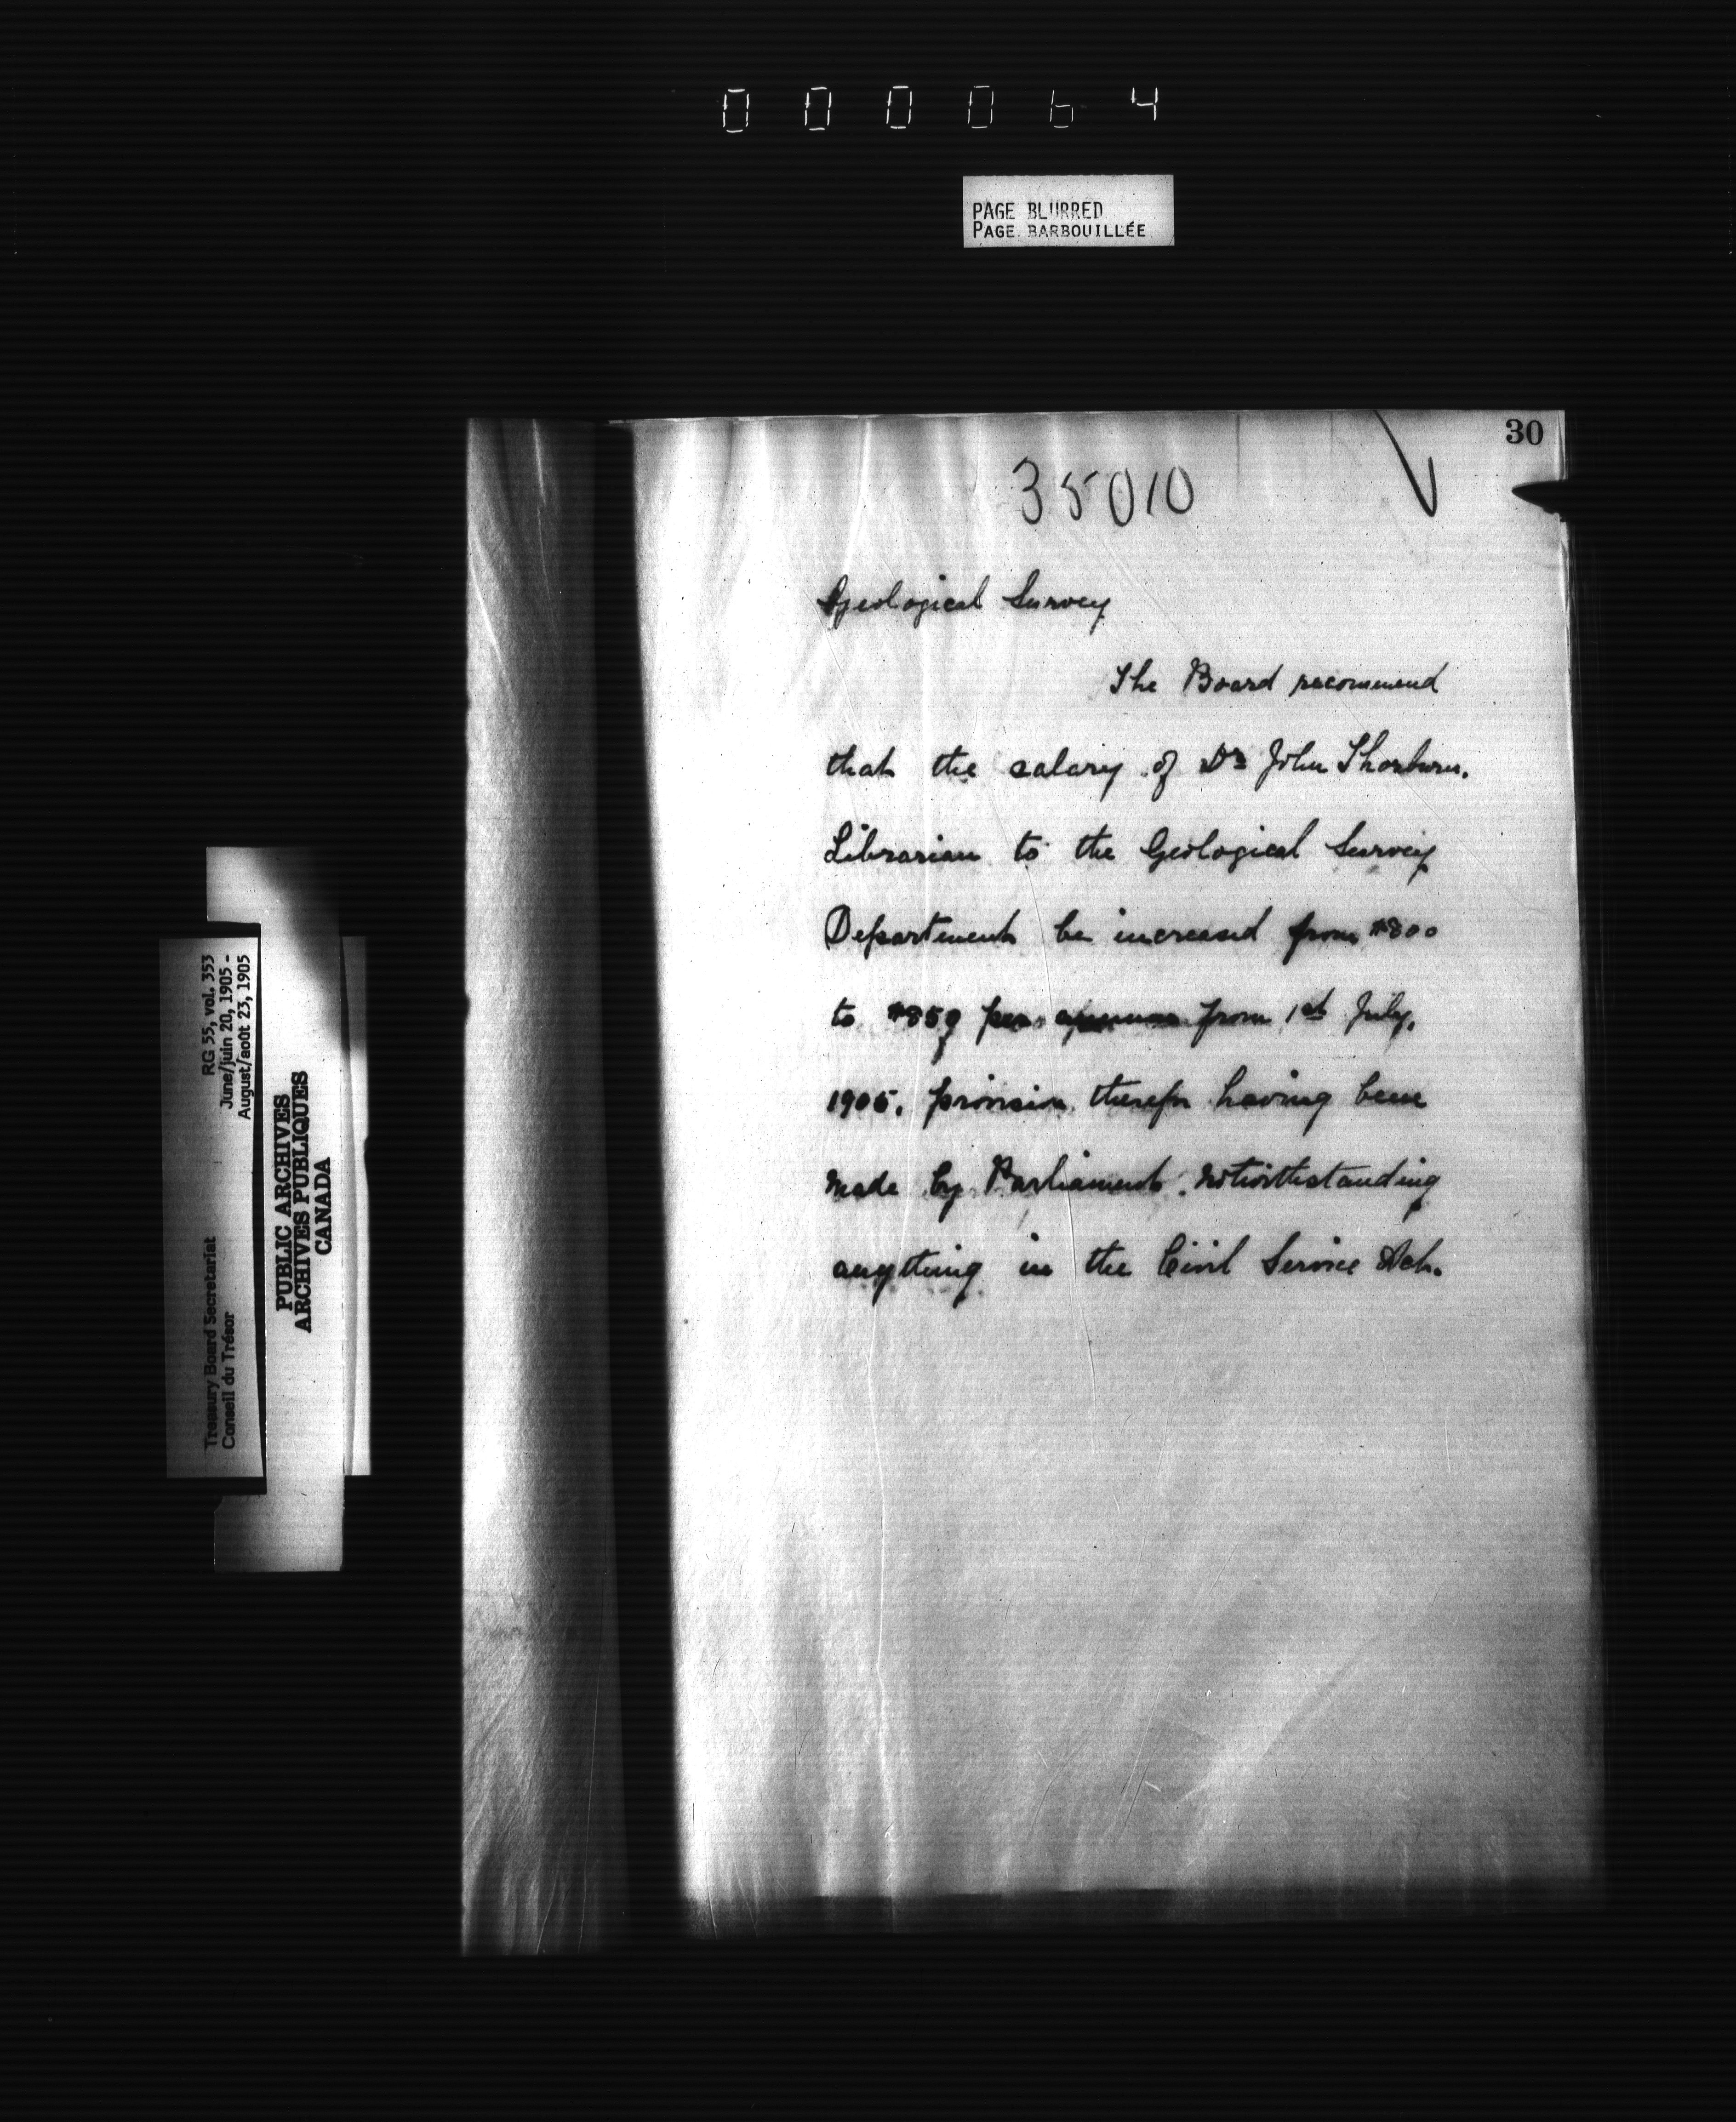 000064
PAGE BLURRED
PAGE BARBOUILLÉE
30
35010
Geological Survey
The Board recommend
that the salary of Dr John Thorburn,
Librarian to the Geological Survey
Department be increased from $800
to $850 per annum from 1st July,
1905, provision therefor having been
made by Parliament, notwithstanding
anything in the Civil Service Act.
RG 55, vol. 353
June/juin 20, 1905 -
August/août 23, 1905
Treasury Board Secretariat
Conseil du Trésor
PUBLIC ARCHIVES
ARCHIVES PUBLIQUES
CANADA